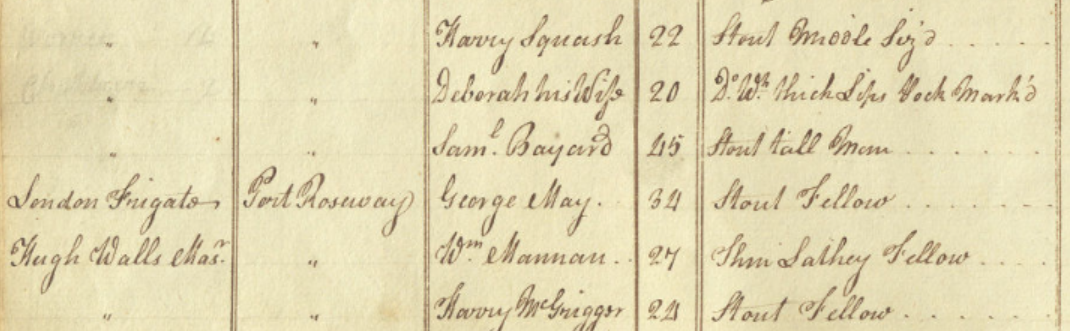 " " Harry Squash 22 Stout Middle Siz'd . . . . .
" " Deborah his Wife 20 Do. Wh. thick Lips Pock Mark'd
" " Saml. Bayard 45 Stout tall Man . . . . . .
London Frigate Port Roseway George May. 34 Stout Fellow . . . . . .
Hugh Walls Masr. " Wm Mannan . . 27 Thin Lathey Fellow . . . .
" " Harry McGrigger 24 Stout Fellow . . . . . .